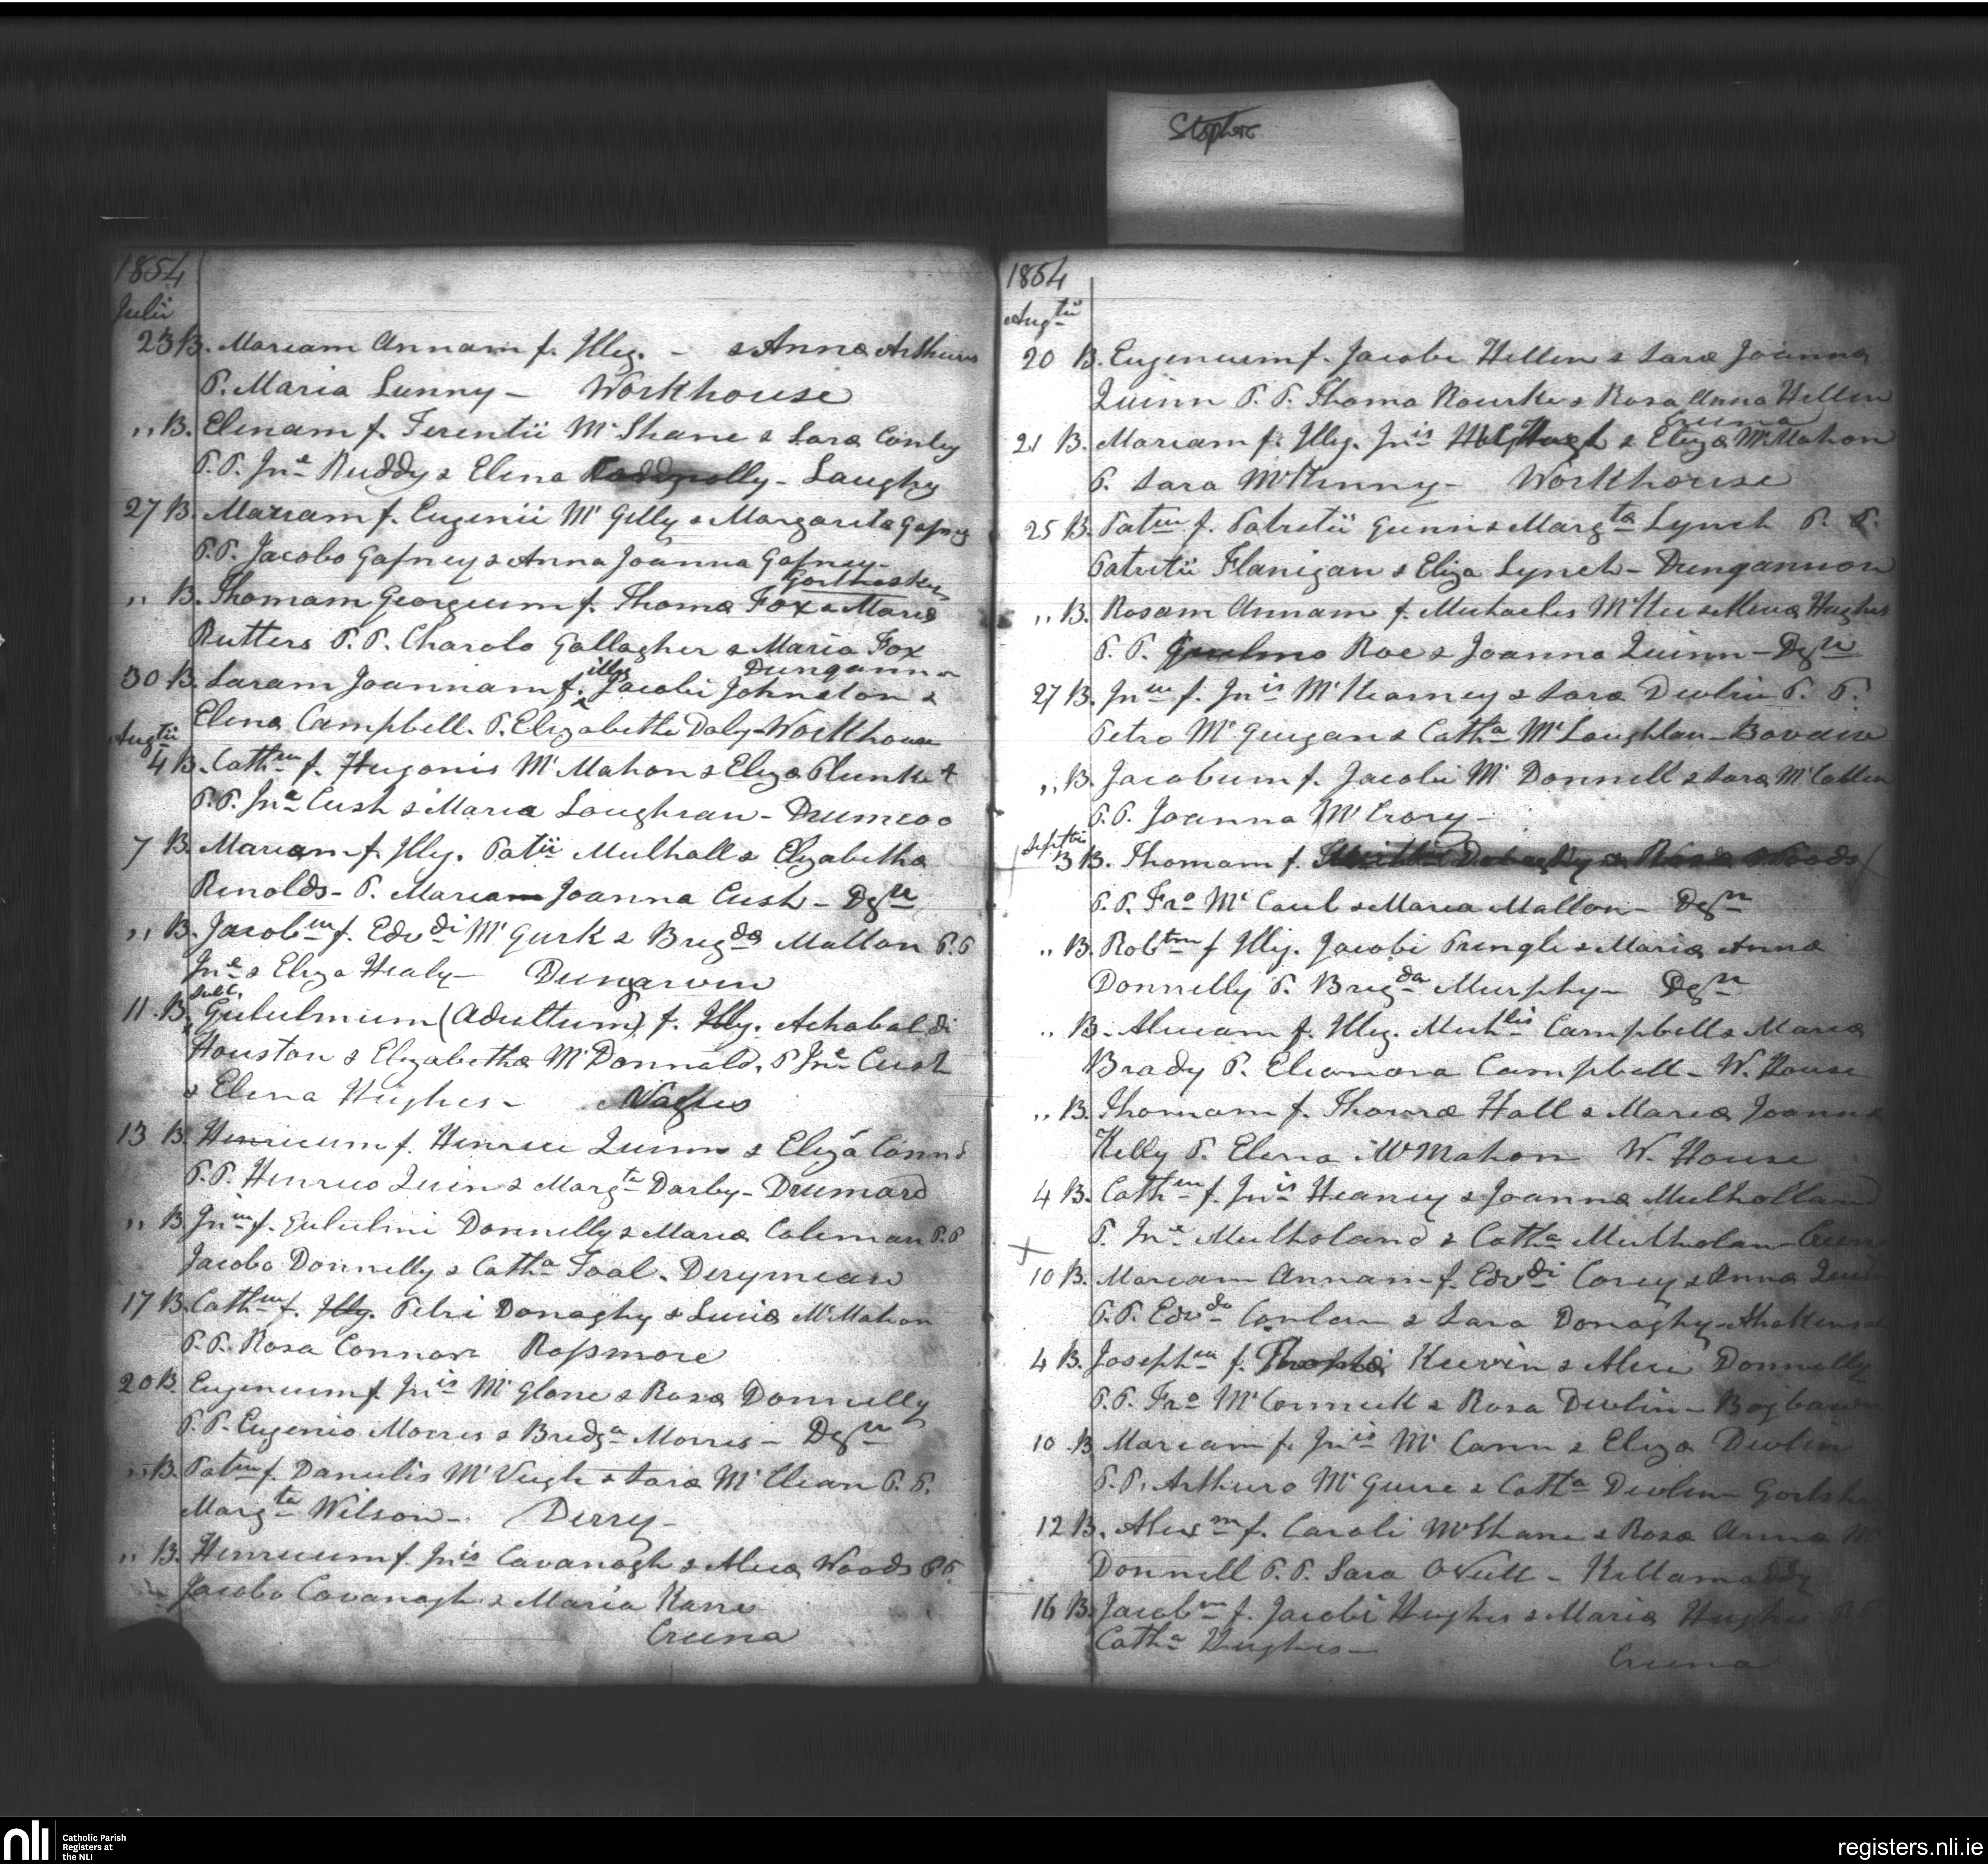 Stephen
1854
Julii
23 B. Mariam Annam f. Illeg. - & Annæ Arthurs
P. Maria Lunny - Workhouse
,, B. Elenam f. Terentii McShane & Saræ Conley
P.P. Jne Ruddy & Elena Laughy
27 B. Mariam f. Eugenii McGilly & Margarita Gafney
P.P. Jacobo Gafney & Anna Joanna Gafney -
,, B. Thomam Georgium f. Thomæ Fox & Mariæ
Rutters P.P. Charolo Gallagher & Maria Fox
Dungannon
30 B. Saram Joannam f. illeg Jacobi Johnston &
Elena Campbell. P. Elizabetha Daly - Workhouse
Augtii
4 B. Cathm f. Hugonis McMahon & Eliza Plunket
P.P. Jne Cush & Maria Loughran - Drumcoo
7 B. Mariam f. Illeg. Patii Mulhall & Elizabetha
Renolds - P. Maria Joanna Cush - Dgn
,, B. Jacobm f. Edvdi McGurk & Brigdæ Mallon P.P
Jne & Eliza Healy - Dungarvin
11 B. sub c. Gulielmium (Adultum) f. Illeg. Achabaldi
Houston & Elizabethæ McDonnald, P Jne Cush
& Elena Hughes - Vagus
13 B. Henricum f. Henrici Quinn & Eliza
P.P. Henrico Quin & Margta Darby - Drumard
,, B. Jnm f. Gulielmi Donnelly & Mariæ Coleman P.P
Jacobo Donnelly & Catha Toal - Derymean
17 B. Cathm f. Illeg. Petri Donaghy & Luciæ McMahon
P.P. Rosa Connor Rossmore
20 B. Eugenium f. Jnis McGlone & Rosæ Donnelly
P.P. Eugenio Morris & Bridga Morris - Dgn
,, B. Patm f. Danielis McVeigh & Saræ McClean P.P.
Margta Wilson - Derry -
,, B. Henricum f. Jnis Cavanagh & Aliciæ Woods P.P.
Jacobo Cavanagh & Maria Kane
Creena
1854
Augtii
20 B. Eugenium f. Jacobi Hellen & Saræ Joanna
Quinn P.P. Thoma Rourke & Rosa Anna Hellen
Creena
21 B. Mariam f. Illeg. Jnis & Eliza McMahon
P. Sara McKinny - Workhouse
25 B. Patm f. Patritii Gunn & Margta Lynch P.P.
Patritii Flanigan & Eliza Lynch - Dungannon
,, B. Rosam Annam f. Michaelis McKee & Hughes
P.P. Roe & Joanna Quinn - Dgn
27 B. Jnm f. Jnis McKearney & Saræ Devlin P.P.
Petro McGuigan & Catha McLoughlan -
,, B. Jacobum f. Jacobi McDonnell & Saræ McCallen
P.P. Joanna McCrory -
Septbri
3 B. Thomam f.
P.P. Fro McCaul & Maria Mallon - Dgn
,, B. Robtm f Illeg. Jacobi Pringle & Mariæ Annæ
Donnelly P. Brigda Murphy - Dgn
,, B. Aliciam f. Illeg. Michlis Campbell & Mariæ
Brady P. Eleanora Campbell - W. House
,, B. Thomam f. Thomæ Hall & Mariæ Joannæ
Kelly P. Elena McMahon W. House
4 B. Cathm f. Jnis Heaney & Joannæ Mulholland
P. Jne Mulholand & Catha Mulholan -
10 B. Mariam Annam f. Edvdi Corey & Annæ
P.P. Edvdo Conlan & Sara Donaghy -
4 B. Josephm f. Keervin & Alicia Donnelly
P.P. Fro McCormick & Rosa Devlin -
10 B Mariam f. Jnis McCann & Eliza Devlin
P.P. Arthuro McGuire & Catha Devlin -
12 B. Alexm f. Caroli McShane & Rosæ Annæ Mc
Donnell P.P. Sara ONeill - Killamaddy
16 B. Jacobm f. Jacobi Hughes & Mariæ Hughes P.P
Catha Hughes -
Creena
nli Catholic Parish
Registers at
the NLI
registers.nli.ie